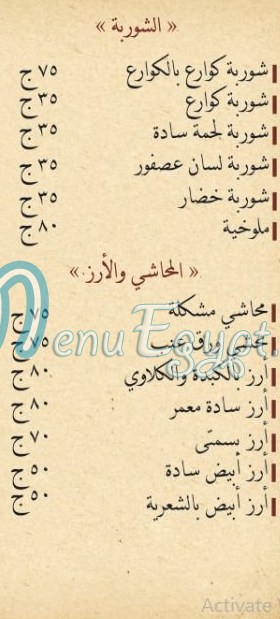 « الشوربة »
شوربة كوارع بالكوارع ٧٥ ج
شوربة كوارع ٣٥ ج
شوربة لحمة سادة ٣٥ ج
شوربة لسان عصفور ٣٥ ج
شوربة خضار ٣٥ ج
ملوخية ٨٠ ج
« المحاشي والأرز »
محاشي مشكلة ٧٥ ج
محاشي ورق عنب ٧٥ ج
أرز بالكبدة والكلاوي ٨٠ ج
أرز سادة معمر ٨٠ ج
أرز بسمتى ٧٠ ج
أرز أبيض سادة ٥٠ ج
أرز أبيض بالشعرية ٥٠ ج
MenuEgypt.com
Activate